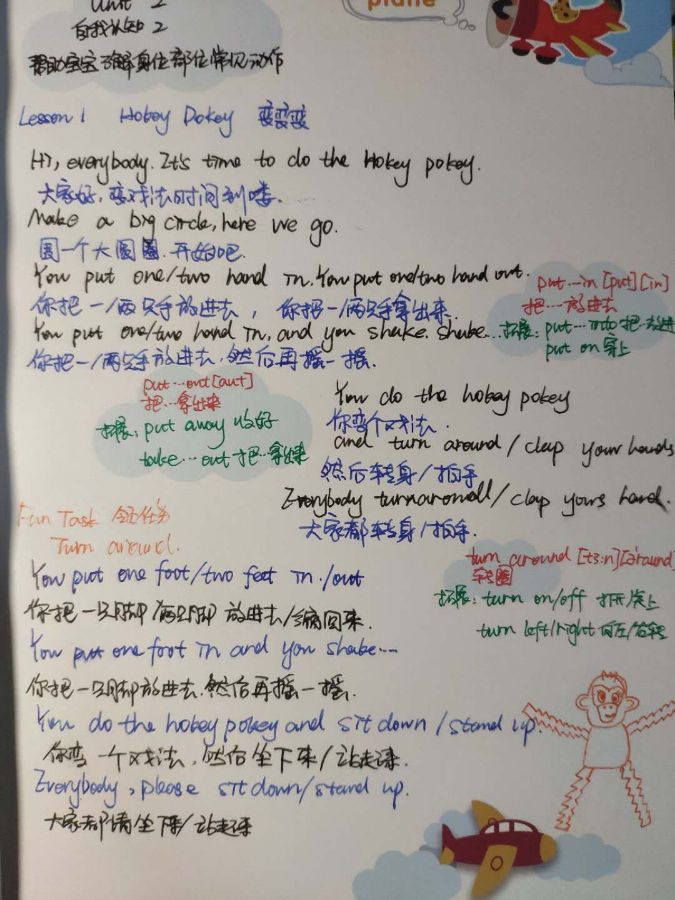 Unit 2
plane
自我认知 2
帮助宝宝了解身体部位常见动作
Lesson 1 Hokey Pokey 变变变
Hi, everybody. It's time to do the Hokey pokey.
大家好,变戏法时间到喽.
Make a big circle, here we go.
围一个大圆圈.开始吧.
You put one/two hand in. You put one/two hand out.
你把一/两只手放进去, 你把一/两只手拿出来.
put…in [put] [in]
把…放进去
You put one/two hand in, and you shake. shake…
拓展: put…into 把…放进
put on 穿上
你把一/两只手放进去,然后再摇一摇.
put…out [aut]
把…拿出来
拓展: put away 收好
take…out 把…拿出来
You do the hokey pokey
你变个戏法.
and turn around / clap your hands
然后转身/拍手
Everybody turn around / clap yours hand.
大家都转身/拍手.
Fun Task 任务
Turn around.
You put one foot/two feet in./out
你把一只脚/两只脚放进去/缩回来.
You put one foot in and you shake…
你把一只脚放进去.然后再摇一摇.
turn around [tɜ:n] [əraund]
转圈
拓展: turn on/off 打开/关上
turn left/right 向左/右转
You do the hokey pokey and sit down / stand up.
你变一个戏法,然后坐下来/站起来.
Everybody, please sit down/stand up.
大家都请坐下来/站起来